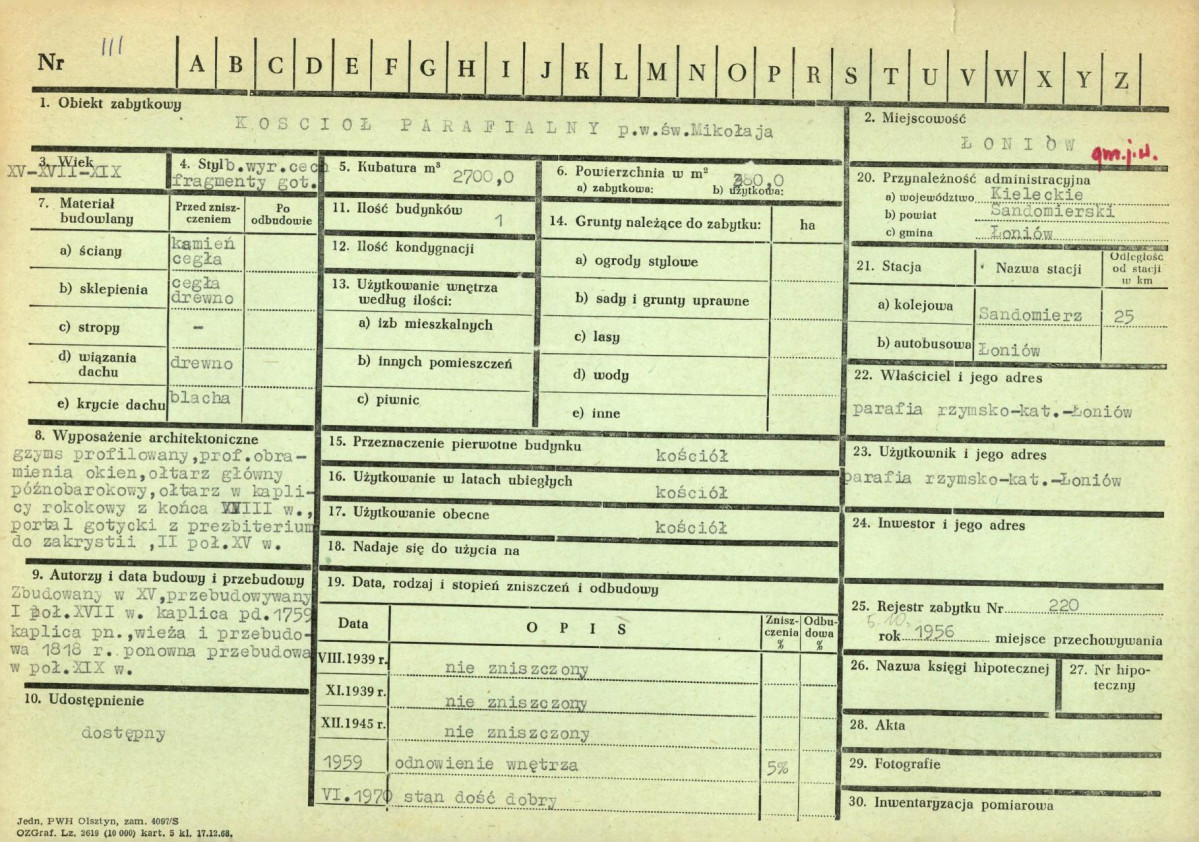 Nr III A B C D E F G H I J K L M N O P R S T U V W X Y Z
1. Obiekt zabytkowy
KOSCIOŁ PARAFIALNY p.w.św.Mikołaja
2. Miejscowość
ŁONIÓW gm.j.w.
3. Wiek
XV-XVII-XIX
4. Styl b.wyr.cech
fragmenty got.
5. Kubatura m³ 2700,0
6. Powierzchnia w m²
a) zabytkowa: b) użytkowa: 380,0
7. Materiał budowlany
Przed zniszczeniem
Po odbudowie
a) ściany kamień
cegła
b) sklepienia cegła
drewno
c) stropy –
d) wiązania dachu drewno
e) krycie dachu blacha
8. Wyposażenie architektoniczne
gzyms profilowany,prof.obra-
mienia okien,ołtarz główny
późnobarokowy,ołtarz w kapli-
cy rokokowy z końca XVIII w.,
portal gotycki z prezbiterium
do zakrystii ,II poł.XV w.
9. Autorzy i data budowy i przebudowy
Zbudowany w XV,przebudowywany
I poł.XVII w. kaplica pd.1759
kaplica pn.,wieża i przebudo-
wa 1818 r. ponowna przebudowa
w poł.XIX w.
10. Udostępnienie
dostępny
11. Ilość budynków 1
12. Ilość kondygnacji
13. Użytkowanie wnętrza
według ilości:
a) izb mieszkalnych
b) innych pomieszczeń
c) piwnic
14. Grunty należące do zabytku: ha
a) ogrody stylowe
b) sady i grunty uprawne
c) lasy
d) wody
e) inne
15. Przeznaczenie pierwotne budynku
kościół
16. Użytkowanie w latach ubiegłych
kościół
17. Użytkowanie obecne
kościół
18. Nadaje się do użycia na
19. Data, rodzaj i stopień zniszczeń i odbudowy
Data OPIS Zniszczenia % Odbudowa %
VIII.1939 r. nie zniszczony
XI.1939 r. nie zniszczony
XII.1945 r. nie zniszczony
1959 odnowienie wnętrza 5%
VI.1970 stan dość dobry
20. Przynależność administracyjna
a) województwo Kieleckie
b) powiat Sandomierski
c) gmina Łoniów
21. Stacja Nazwa stacji Odległość
od stacji
w km
a) kolejowa Sandomierz 25
b) autobusowa Łoniów
22. Właściciel i jego adres
parafia rzymsko-kat.-Łoniów
23. Użytkownik i jego adres
parafia rzymsko-kat.-Łoniów
24. Inwestor i jego adres
25. Rejestr zabytku Nr 220
5.10.
rok 1956 miejsce przechowywania
26. Nazwa księgi hipotecznej
27. Nr hipo-
teczny
28. Akta
29. Fotografie
30. Inwentaryzacja pomiarowa
Jedn. PWH Olsztyn, zam. 4097/S
OZGraf. Lz. 2619 (10 000) kart. 5 kl. 17.12.68.